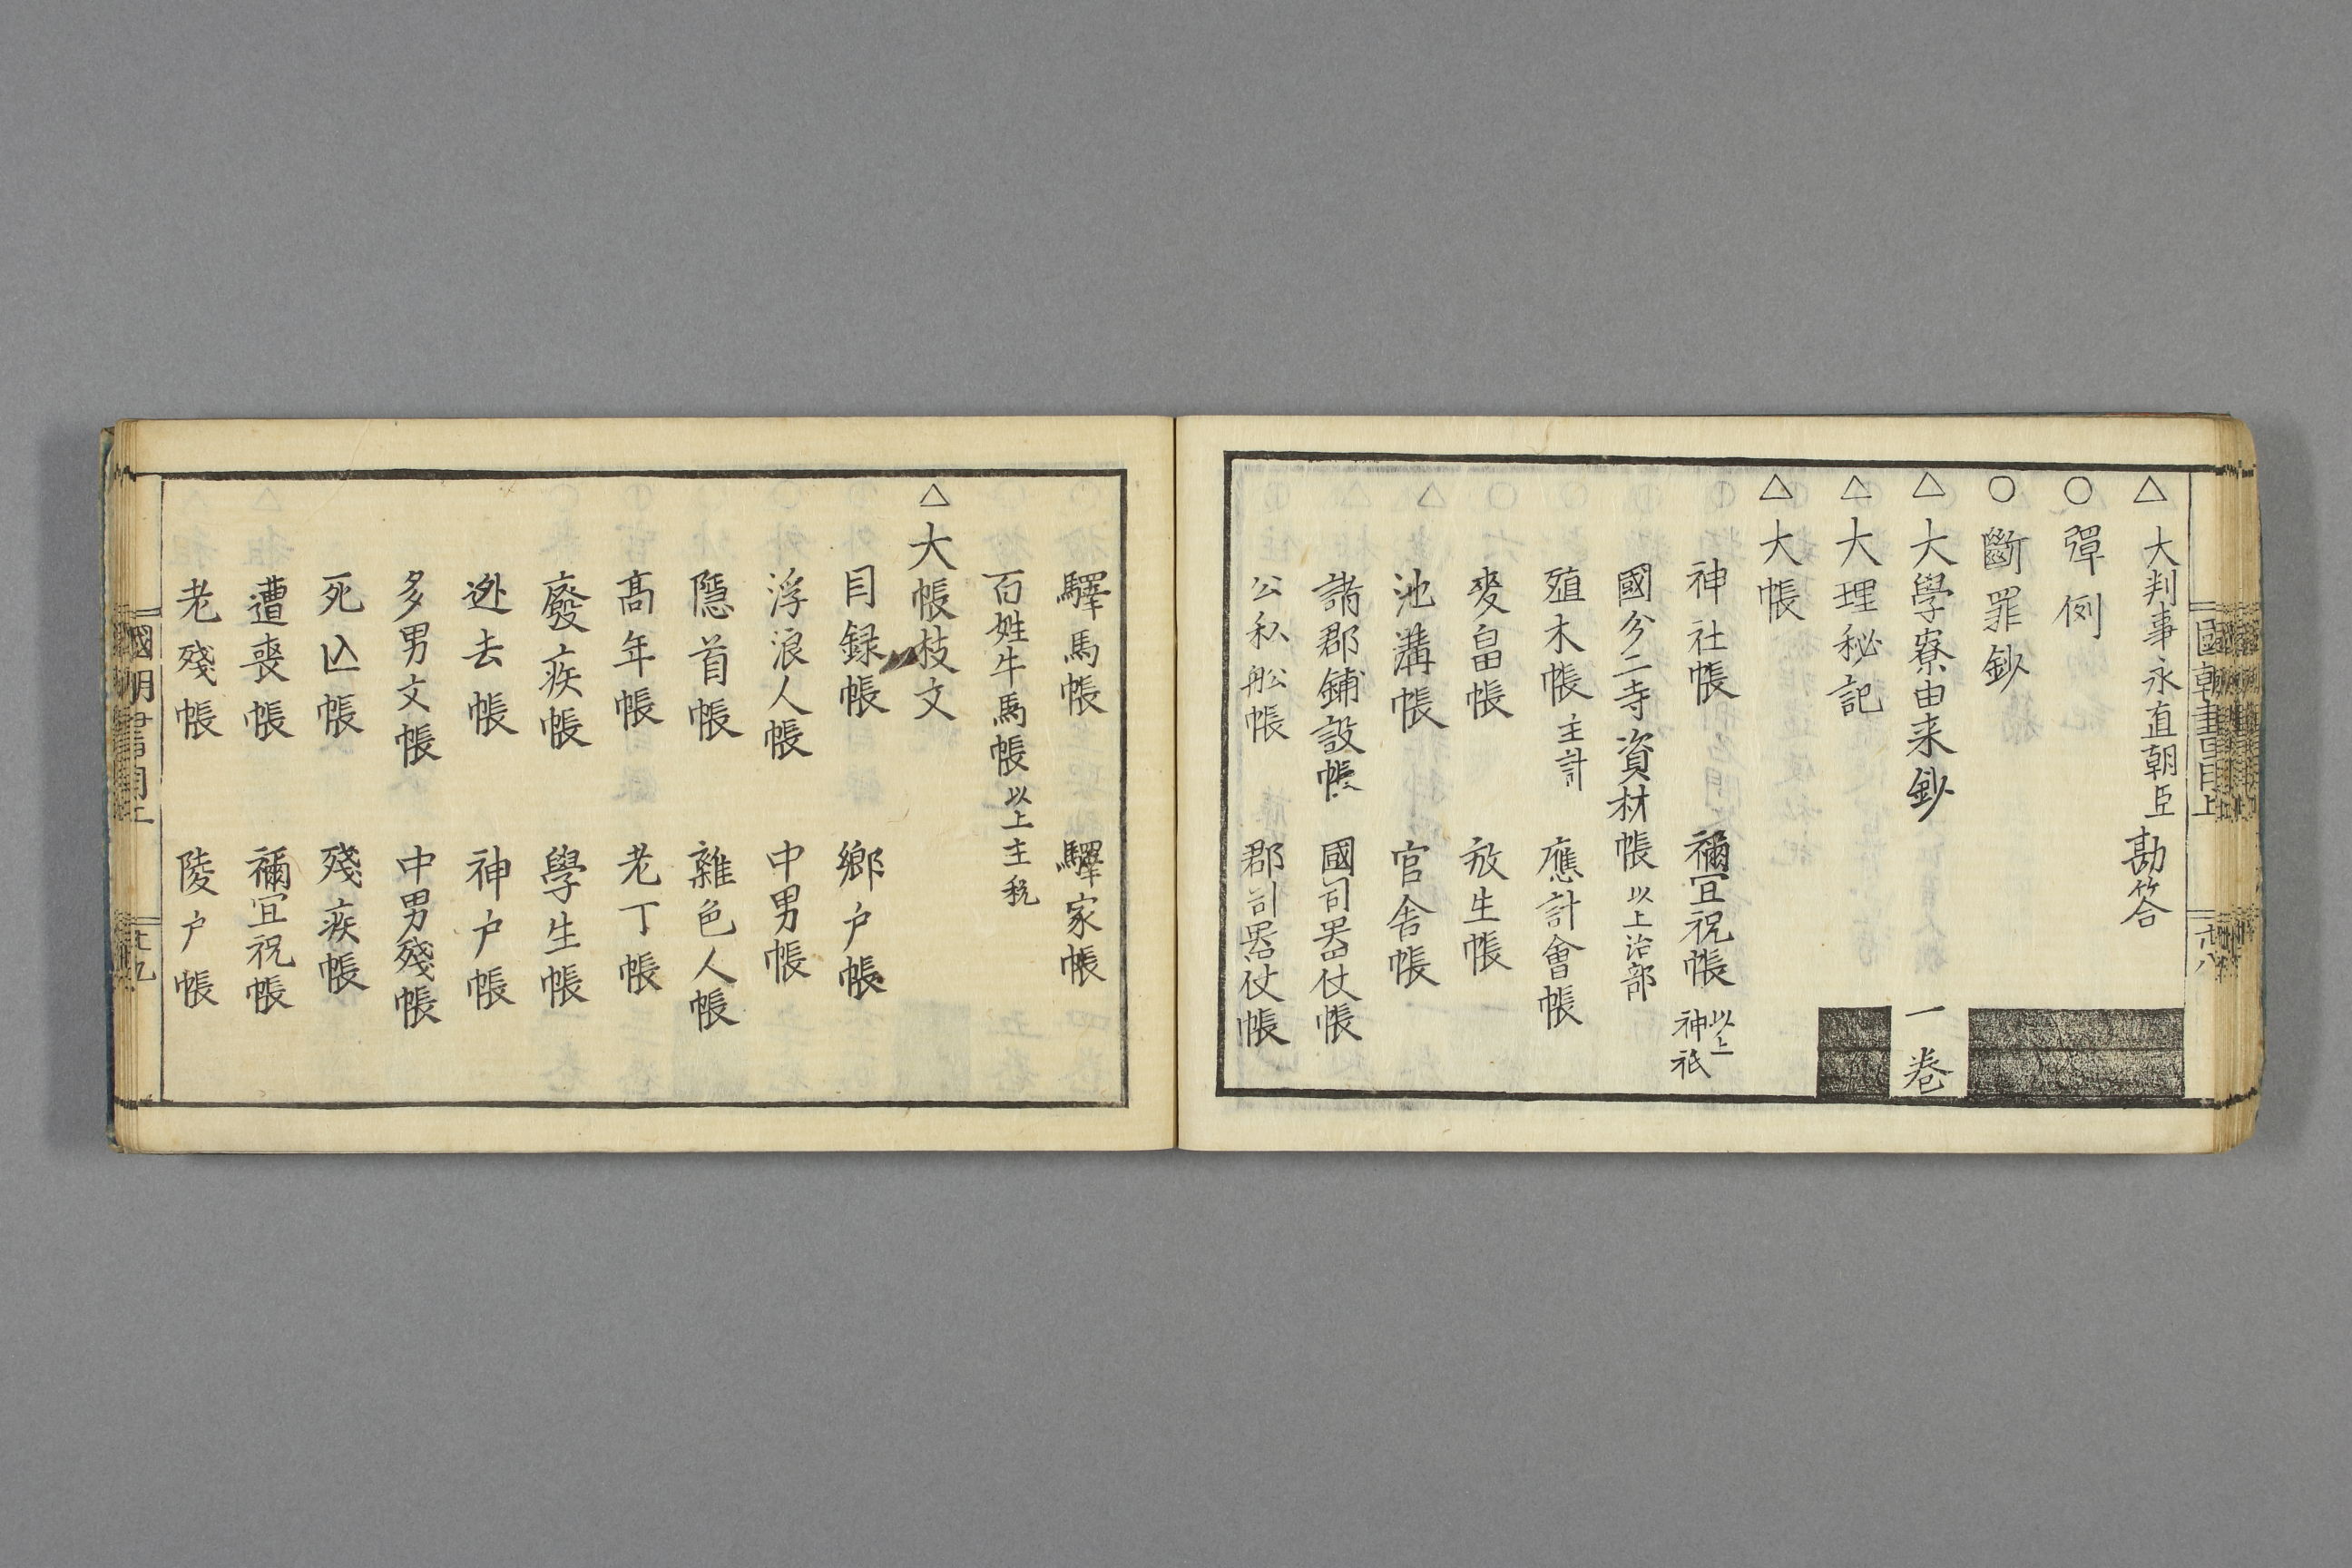 △大判事永直朝臣勘答
○彈例
○斷罪鈔
△大學寮由来鈔 一卷
△大理秘記
△大帳
神社帳 禰冝祝帳 以上神祇
國分二寺資材帳 以上治部
殖木帳 主計 應計會帳
麥畠帳 放生帳
池溝帳 官舎帳
諸郡鋪設帳 國司器仗帳
公私舩帳 郡司器仗帳
驛馬帳 驛家帳
百姓牛馬帳 以上主税
△大帳枝文
目録帳 郷户帳
浮浪人帳 中男帳
隱首帳 雜色人帳
髙年帳 老丁帳
癈疾帳 學生帳
逃去帳 神户帳
多男文帳 中男殘帳
死亾帳 殘疾帳
遭喪帳 禰冝祝帳
老殘帳 陵户帳
國朝書目上
國朝書目上